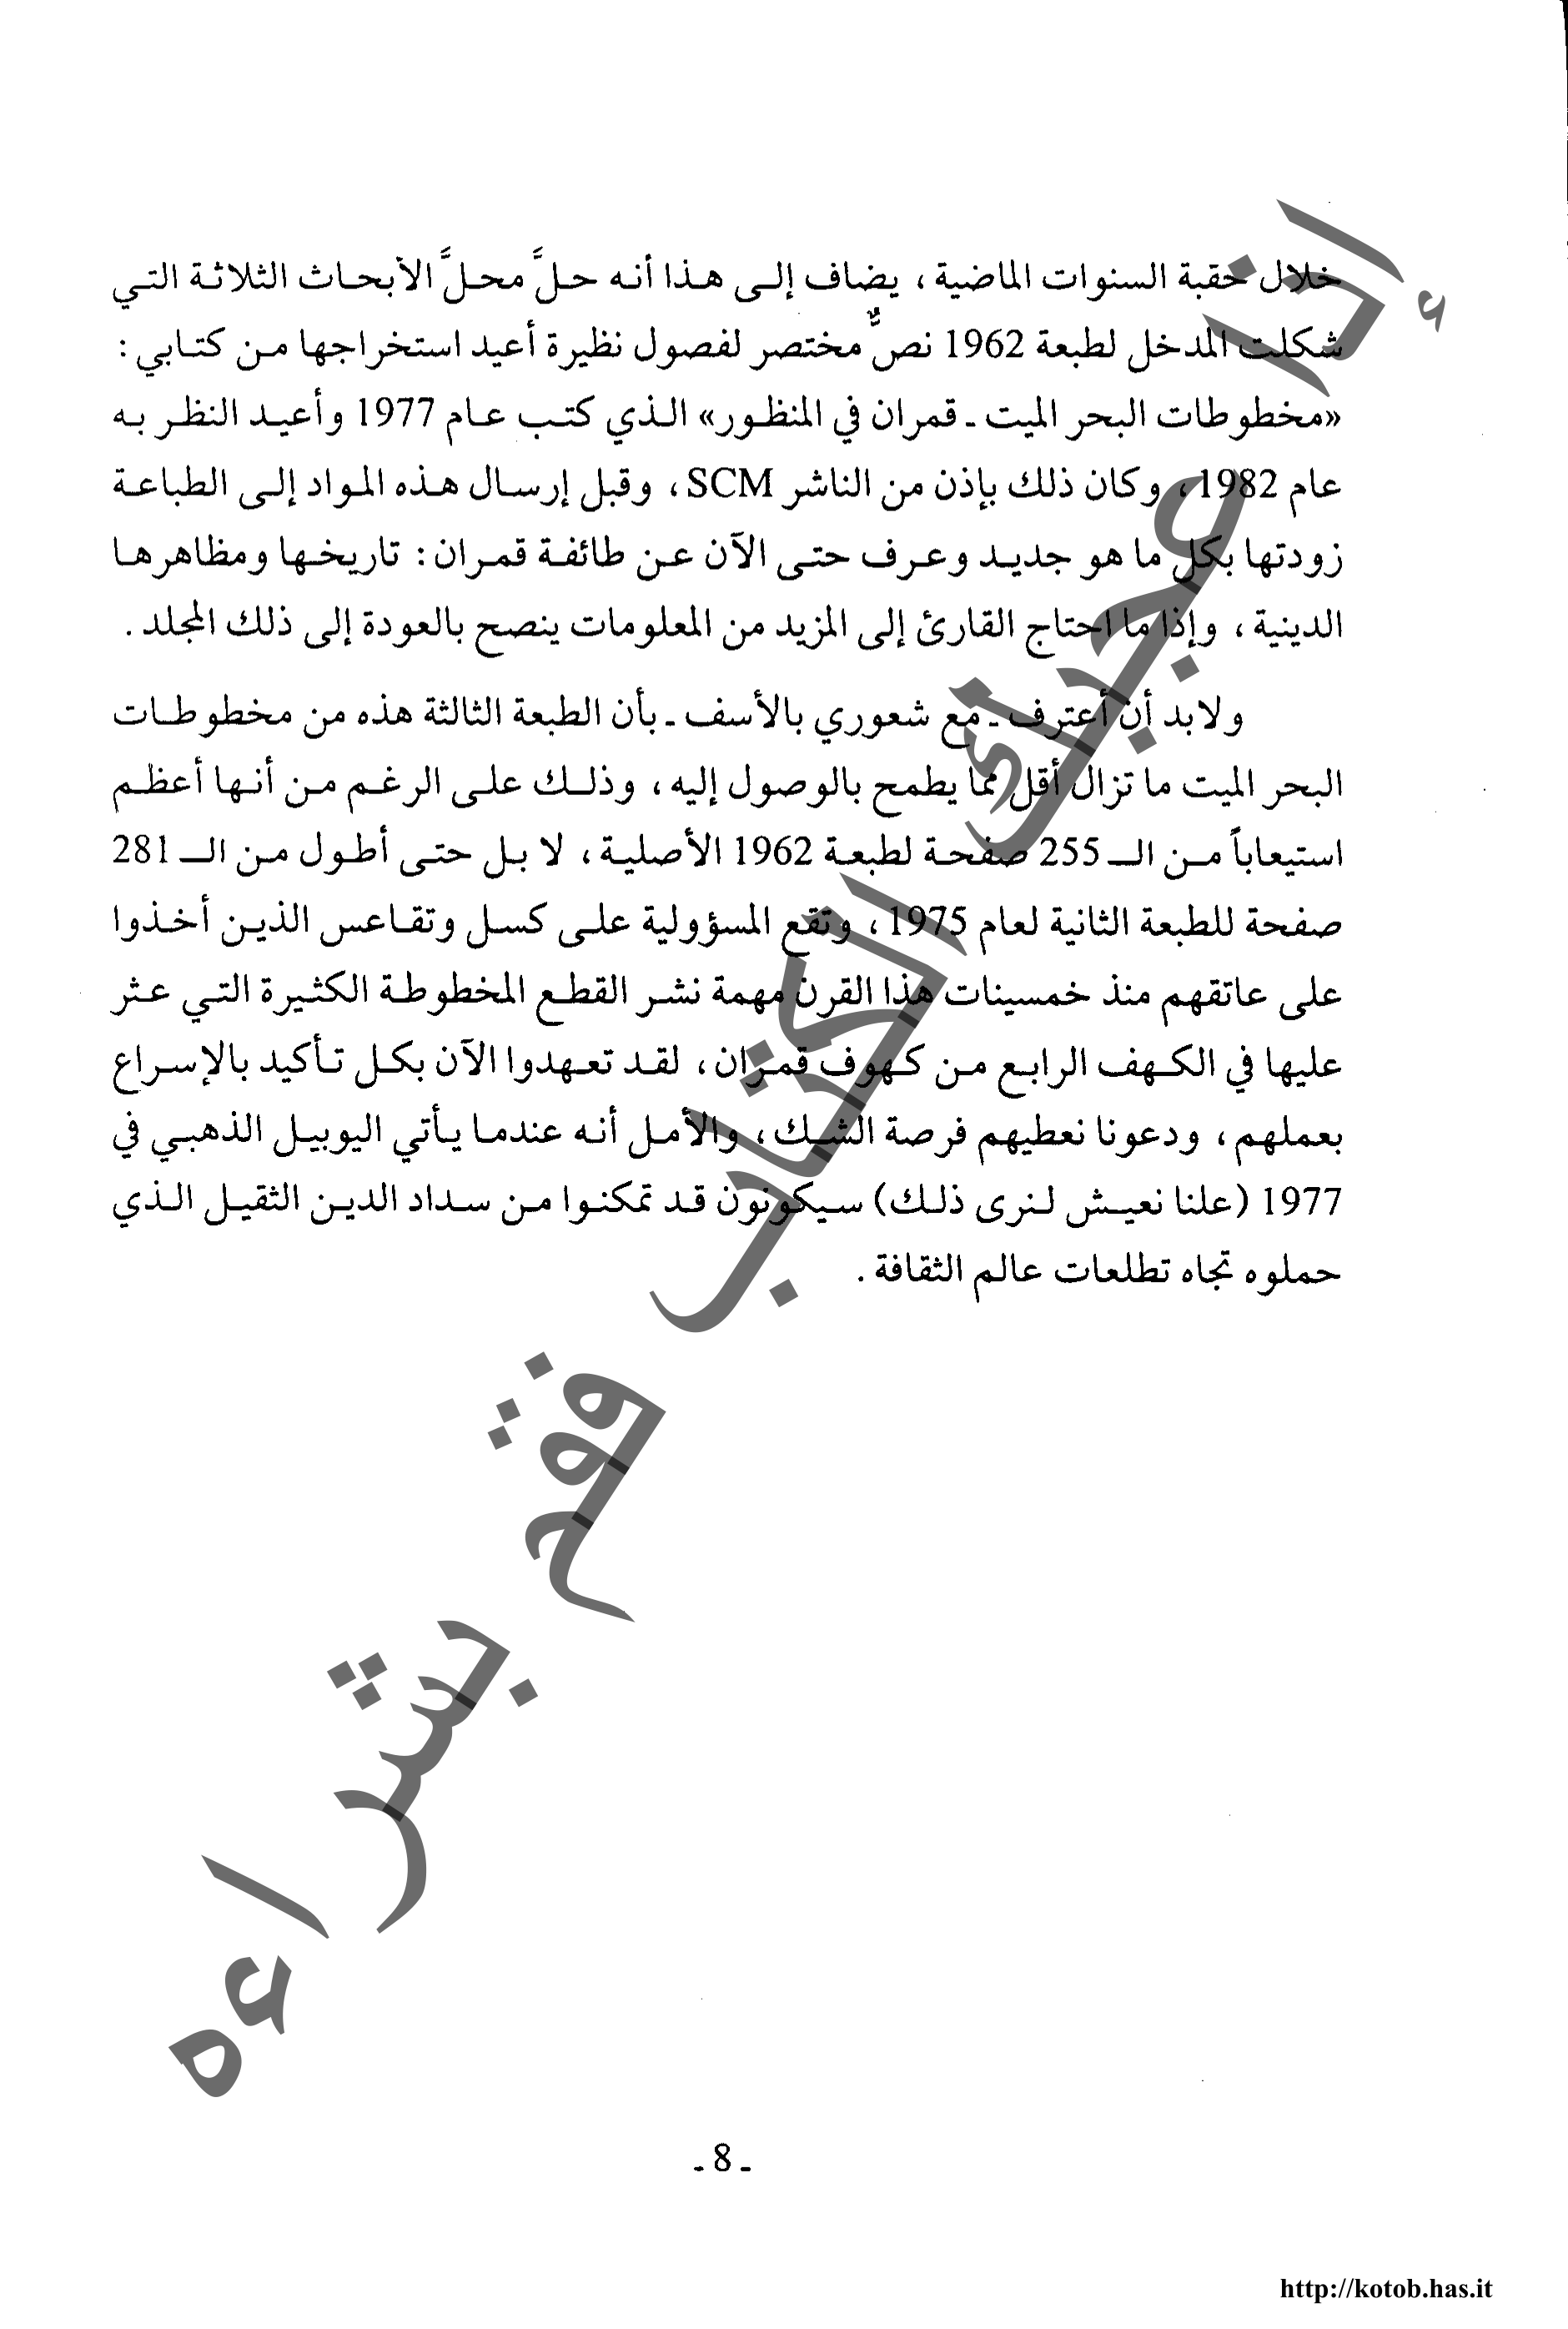 خلال حقبة السنوات الماضية، يضاف إلى هذا أنه حلَّ محلَّ الأبحاث الثلاثة التي
شكلت المدخل لطبعة 1962 نصٌّ مختصر لفصول نظيرة أعيد استخراجها من كتابي:
«مخطوطات البحر الميت ـ قمران في المنظور» الذي كتب عام 1977 وأعيد النظر به
عام 1982، وكان ذلك بإذن من الناشر SCM، وقبل إرسال هذه المواد إلى الطباعة
زودتها بكل ما هو جديد وعرف حتى الآن عن طائفة قمران: تاريخها ومظاهرها
الدينية، وإذا ما احتاج القارئ إلى المزيد من المعلومات ينصح بالعودة إلى ذلك المجلد.
ولابد أن أعترف ـ مع شعوري بالأسف ـ بأن الطبعة الثالثة هذه من مخطوطات
البحر الميت ما تزال أقل مما يطمح بالوصول إليه، وذلك على الرغم من أنها أعظم
استيعاباً من الـ 255 صفحة لطبعة 1962 الأصلية، لا بل حتى أطول من الـ 281
صفحة للطبعة الثانية لعام 1975، وتقع المسؤولية على كسل وتقاعس الذين أخذوا
على عاتقهم منذ خمسينات هذا القرن مهمة نشر القطع المخطوطة الكثيرة التي عثر
عليها في الكهف الرابع من كهوف قمران، لقد تعهدوا الآن بكل تأكيد بالإسراع
بعملهم، ودعونا نعطيهم فرصة الشك، والأمل أنه عندما يأتي اليوبيل الذهبي في
1977 (علنا نعيش لنرى ذلك) سيكونون قد تمكنوا من سداد الدين الثقيل الذي
حملوه تجاه تطلعات عالم الثقافة.
إذا عجبك الكتاب فقم بشراءه
ـ 8 ـ
http://kotob.has.it